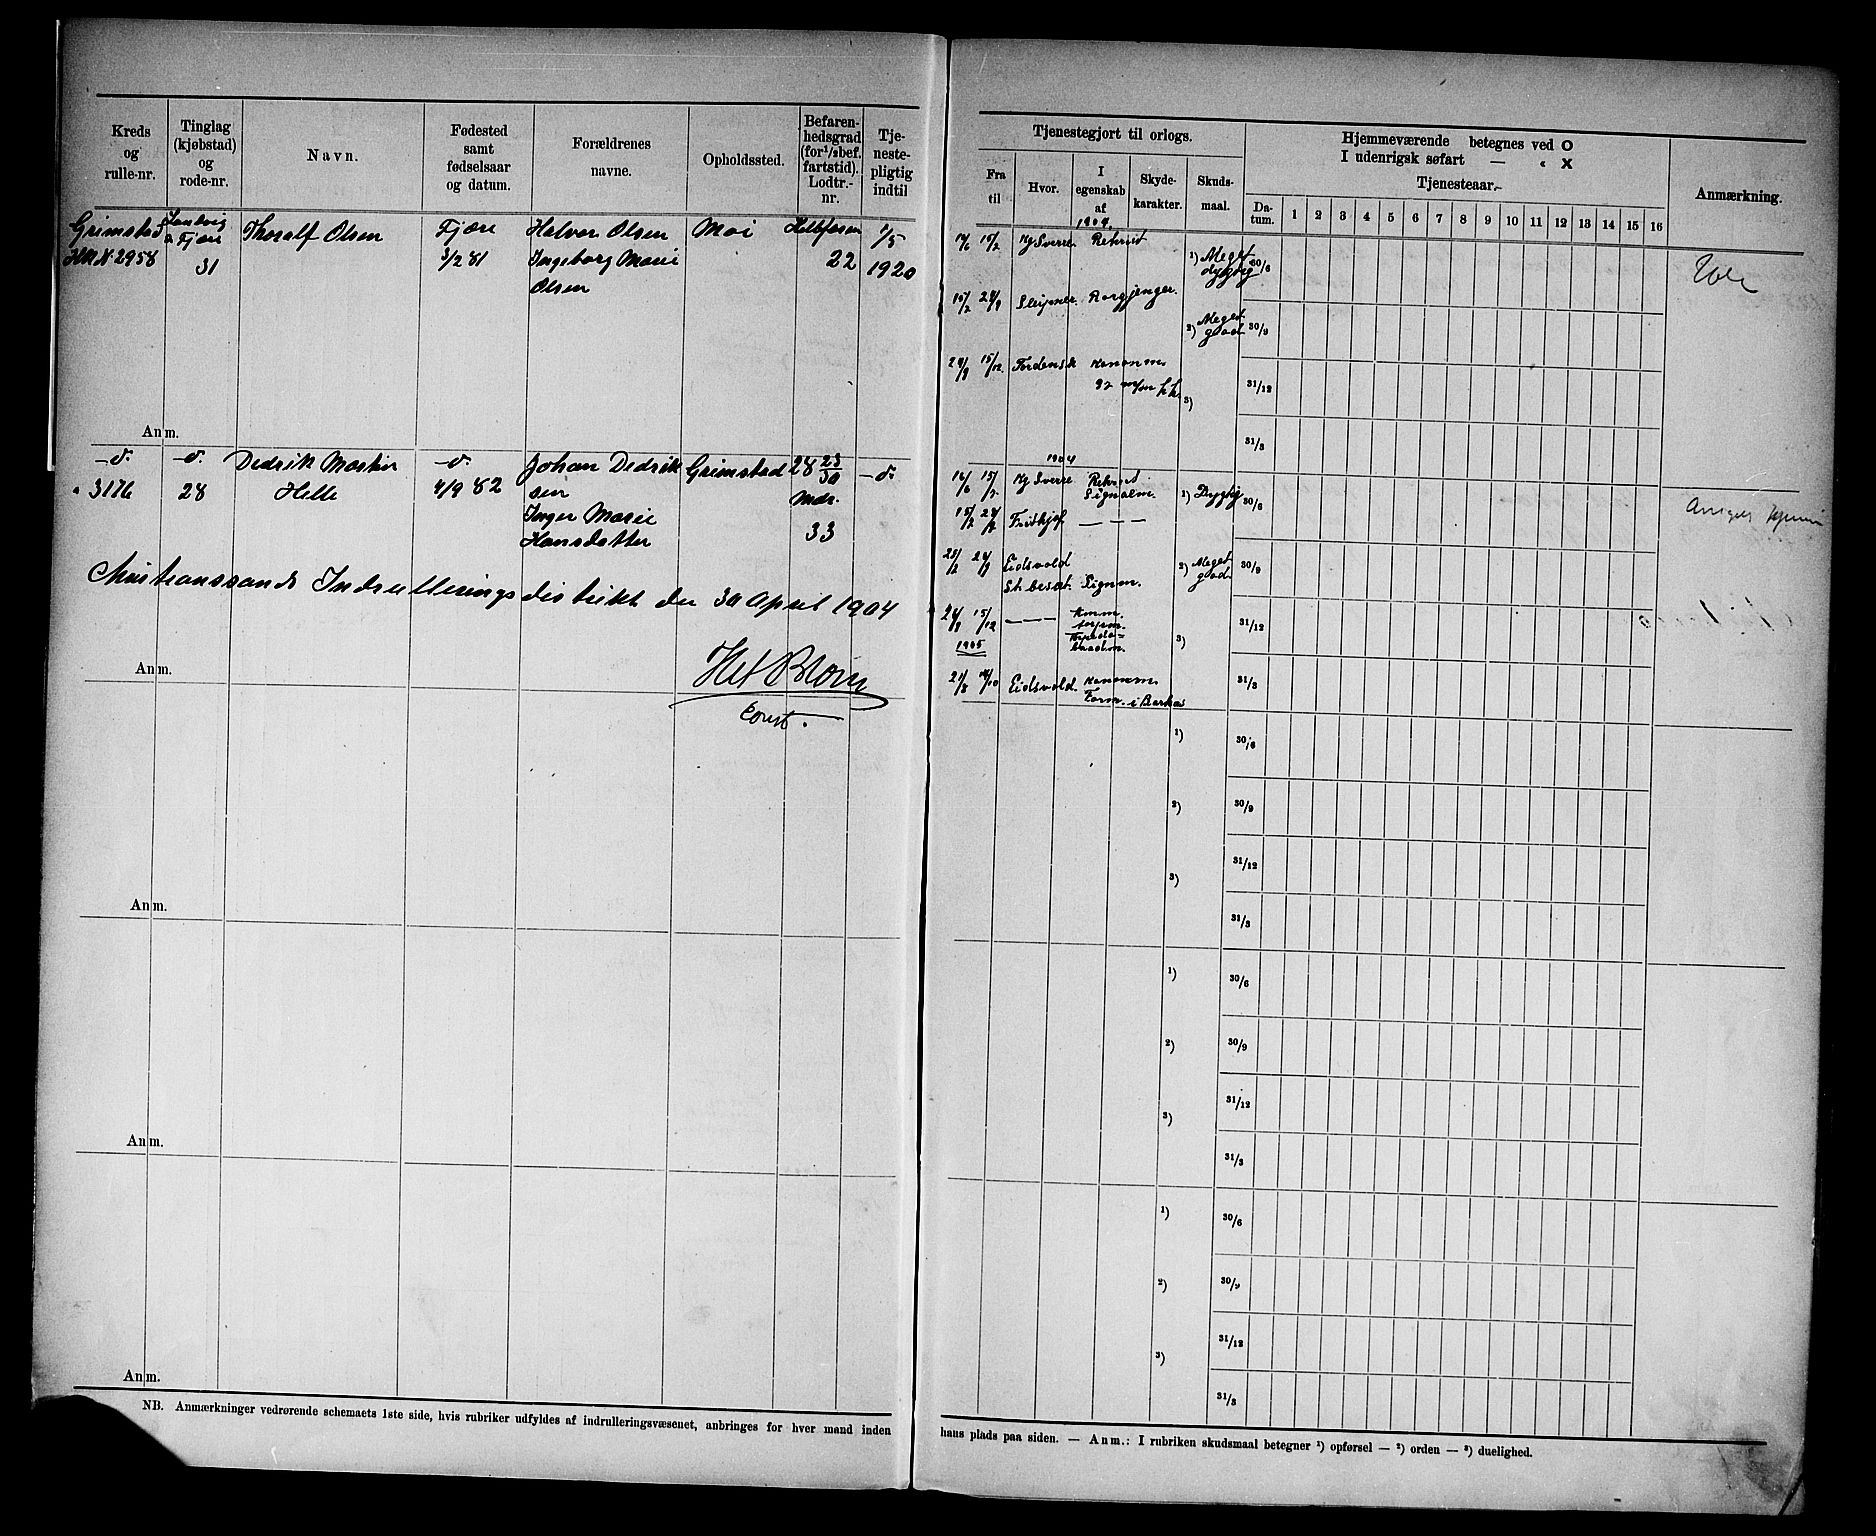 Kreds og rulle-nr.
Tinglag (kjøbstad) og rode-nr.
Navn.
Fødested samt fødselsaar og datum.
Forældrenes navne.
Opholdssted.
Befarenhedsgrad (for 1/2 bef. fartstid). Lodtr.-nr.
Tjenestepligtig indtil
Grimstad
Fjære
Thoralf Olsen
Fjære
Halvor Olsen
Moi
1/5
2958
31
3/2 81
Ingeborg Marie
22
1920
Olsen
Anm.
-d.
-d.
Dedrik Martin
-d.
Johan Dedrik
Grimstad
28 23/30
-d.
" 3176
28
Helle
4/9 82
sen
Mdr.
Inger Marie
33
Hansdatter
Christianssands Indrulleringsdistrikt den 30 April 1904
Anm.
Const.
Anm.
Anm.
Anm.
NB. Anmærkninger vedrørende schemaets 1ste side, hvis rubriker udfyldes af indrulleringsvæsenet, anbringes for hver mand inden
Tjenestegjort til orlogs.
Hjemmeværende betegnes ved O
I udenrigsk søfart — « X
Tjenesteaar.
Anmærkning.
Fra til
Hvor.
I egenskab af
Skydekarakter.
Skudsmaal.
Datum.
1 2 3 4 5 6 7 8 9 10 11 12 13 14 15 16
1904.
Kg Sverre
Rekrut
1) Meget dygtig
30/6
15/2 24/9
Sleipner
Rorgjenger.
2) Meget god
30/9
24/9 15/12.
Tordensk
Kanonm
92 m/m
3)
31/12
31/3
1904
16/6 15/2
Kg Sverre
Rekrut
Signalm.
1) Dygtig
30/6
Fridtjof
— — —
Eidsvold
2) Meget god
30/9
St. besæt.
Signm.
24/9 15/12
— — —
Kmm.
3)
31/12
1905
21/8
Eidsvold.
Kanonm.
31/3
Form. i Barkas
1)
30/6
2)
30/9
31/12
3)
31/3
1)
30/6
2)
30/9
31/12
3)
31/3
1)
30/6
2)
30/9
31/12
3)
31/3
hans plads paa siden. — Anm.: I rubriken skudsmaal betegner 1) opførsel — 2) orden — 3) duelighed.